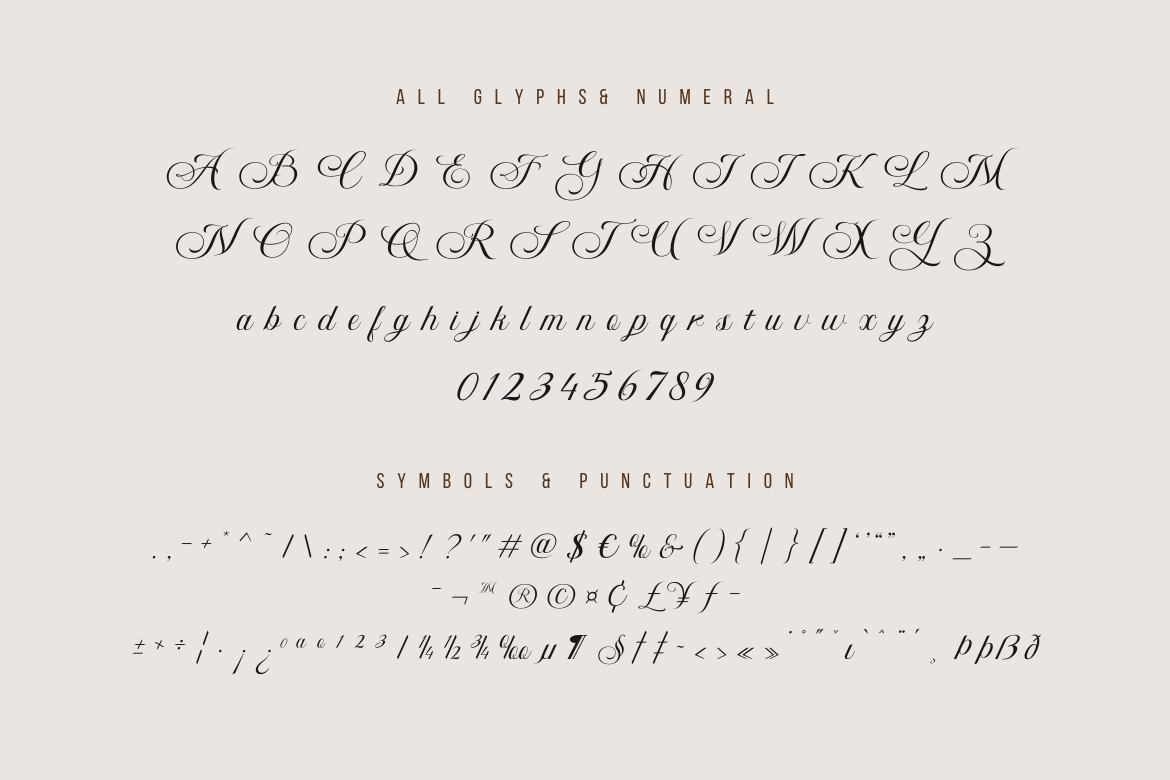 ALL GLYPHS& NUMERAL
A B C D E F G H I J K L M
N O P Q R S T U V W X Y Z
a b c d e f g h i j k l m n o p q r s t u v w x y z
0 1 2 3 4 5 6 7 8 9
SYMBOLS & PUNCTUATION
. , - + * ^ ~ / \ : ; < = > ! ? ' " # @ $ € % & ( ) { | } [ ] ‘ ’ “ ” ‚ „ · _ – —
¯ ¬ ™ ® © ¤ ¢ £ ¥ ƒ -
± × ÷ ¦ · ¡ ¿ º ª º ¹ ² ³ / ¼ ½ ¾ ‰ µ ¶ § † ‡ ~ < > « » ˙ ° ˝ ˇ ı ` ^ ¨ ´ ¸ Þ þ ß ð